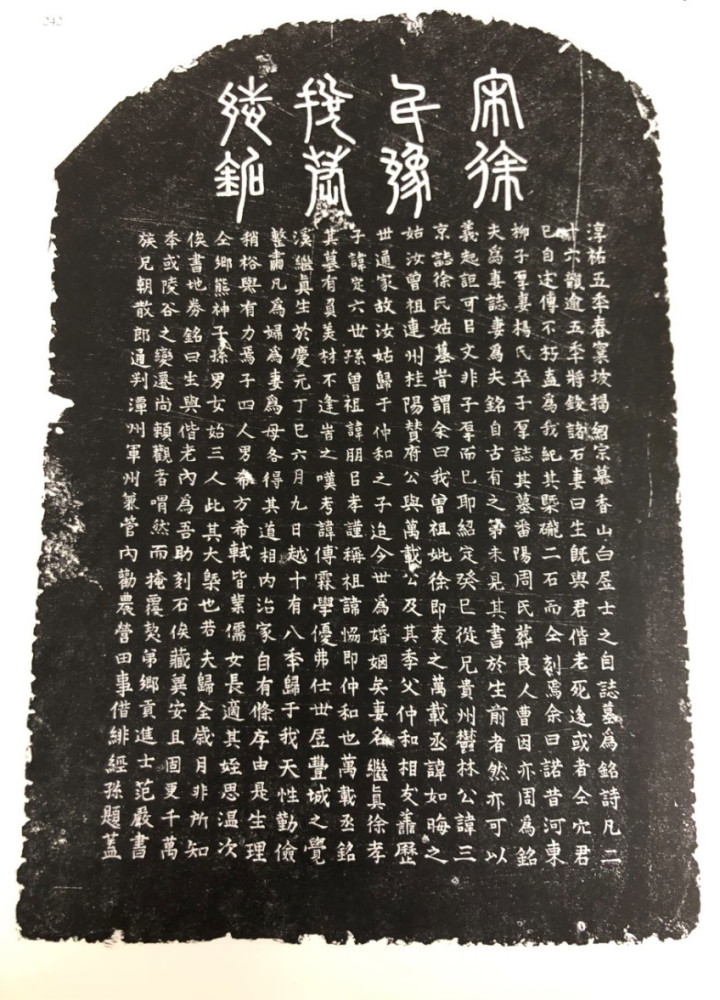 242
宋徐
氏豫
銘
淳祐五季春窠坡揭紹宗慕香山白居士之自誌墓爲銘詩凡二
十六觀逾五季將鋟諸石真曰生旣與君偕老死迻或者仝穴君
已自定傳不朽盍爲我紀其槩礲二石而仝刻焉余曰諾昔河東
柳子厚妻楊氏卒子厚誌其墓番陽周氏葬良人曹因亦周爲銘
夫爲妻誌妻爲夫銘自古有之第未見其書於生前者然亦可以
義起詎可㠯文非子厚而已耶紹定癸巳從兄貴州欝林公諱三
京誌徐氏姑墓甞謂余曰我曾祖妣徐即袁之萬載丞諱如晦之
姑汝曾祖連州桂陽贊府公與萬載公及其季父仲和相友譱歷
世通家故汝姑歸于仲和之子迨今世爲婚姻矣妻名繼真徐孝
子諱定六世孫曾祖諱朋㠯孝謹稱祖諱恊即仲和也萬載丞銘
其墓有負美材不逢旹之嘆考諱傳霖學優弗仕世居豐城之覺
溪繼真生於慶元丁巳六月九日越十有八季歸于我天性勤儉
整肅凡爲婦爲妻爲母各得其道相內治家自有條序由是生理
稍裕與有力焉子四人男希方希軾皆業儒女長適其姪思溫次
仝鄉熊神子孫男女始三人此其大槩也若夫歸全歲月非所知
俟書地券銘曰生與偕老內爲吾助刻石俟藏冀安且固更千萬
季或陵谷之變遷尚賴觀者喟然而掩覆焉弟鄉貢進士范嚴書
族兄朝散郎通判潭州軍州兼管內勸農營田事借緋經孫題蓋